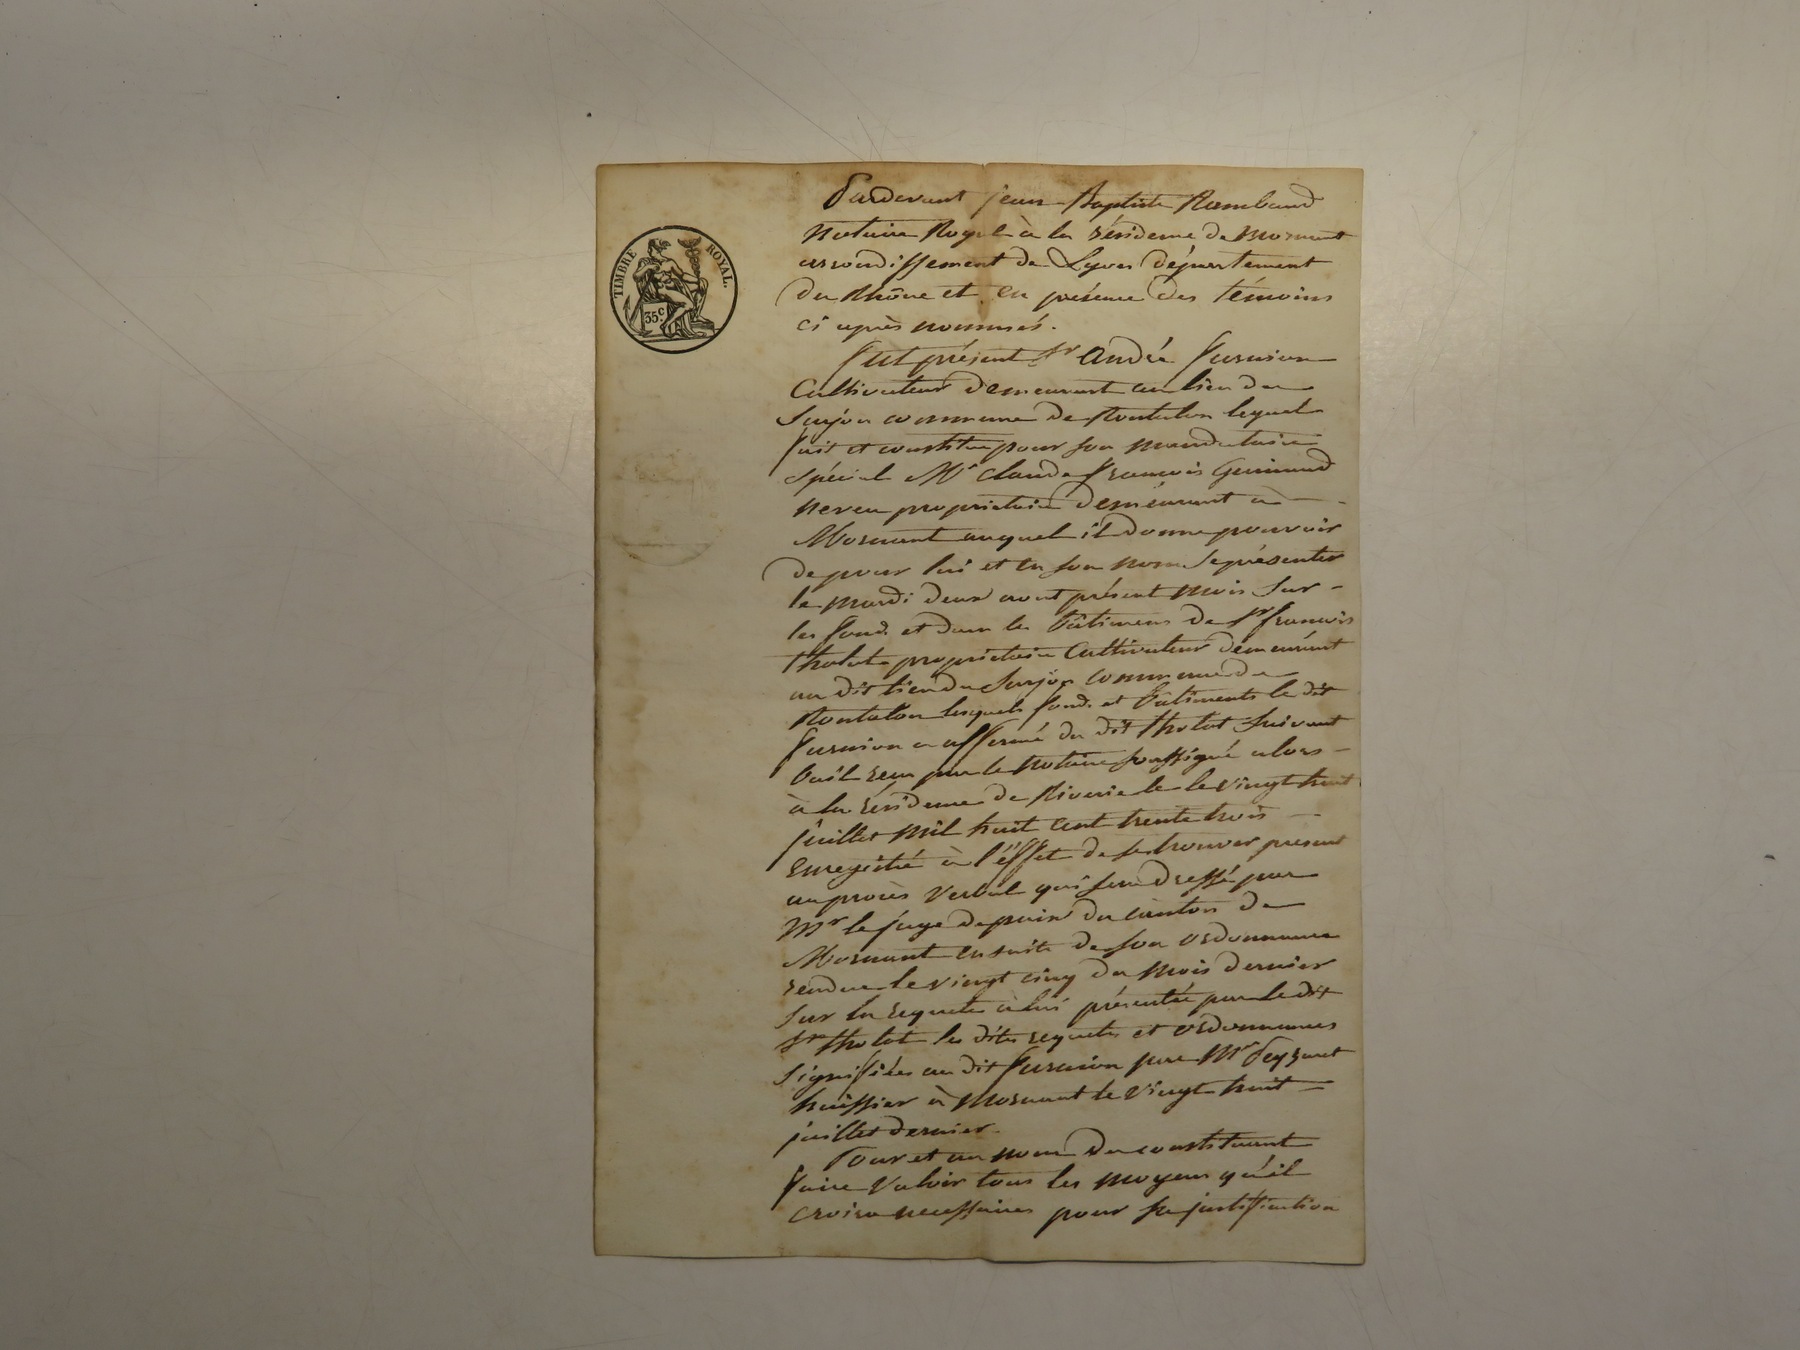 TIMBRE ROYAL.
35c.
Pardevant jean Baptiste Rambaud
Notaire Royal à la résidence de Mornant
arrondissement de Lyon département
du Rhône et en présence des témoins
ci après nommés.
fut présent Sr André furnion
Cultivateur demeurant au lieu du
Surjon commune de Rontalon lequel
fait et constitue pour son mandataire
spécial Mr Claude françois Guinand
neveu propriétaire demeurant à
Mornant auquel il donne pouvoir
de pour lui et en son nom se présenter
le mardi deux aout présent mois sur
les fonds et dans les bâtimens de Sr françois
tholot propriétaire Cultivateur demeurant
au dit lieu du Surjon commune de
Rontalon lesquels fonds et bâtiments le dit
furnion a affermé du dit tholot suivant
bail reçu par le notaire soussigné alors
à la résidence de Riverie le le vingt huit
juillet mil huit cent trente trois
enregistré à l'éffet de se trouver present
au procès verbal qui sera dressé par
Mr le juge de paix du canton de
Mornant ensuite de son ordonnance
rendue le vingt cinq du mois dernier
sur la requete à lui présentée par le dit
Sr tholot les dites requetes et ordonnances
signifiées au dit furnion par Mr
huissier à Mornant le vingt huit
juillet dernier.
Pour et au nom du constituant
faire valoir tous les moyens qu'il
croira necessaires pour sa justification